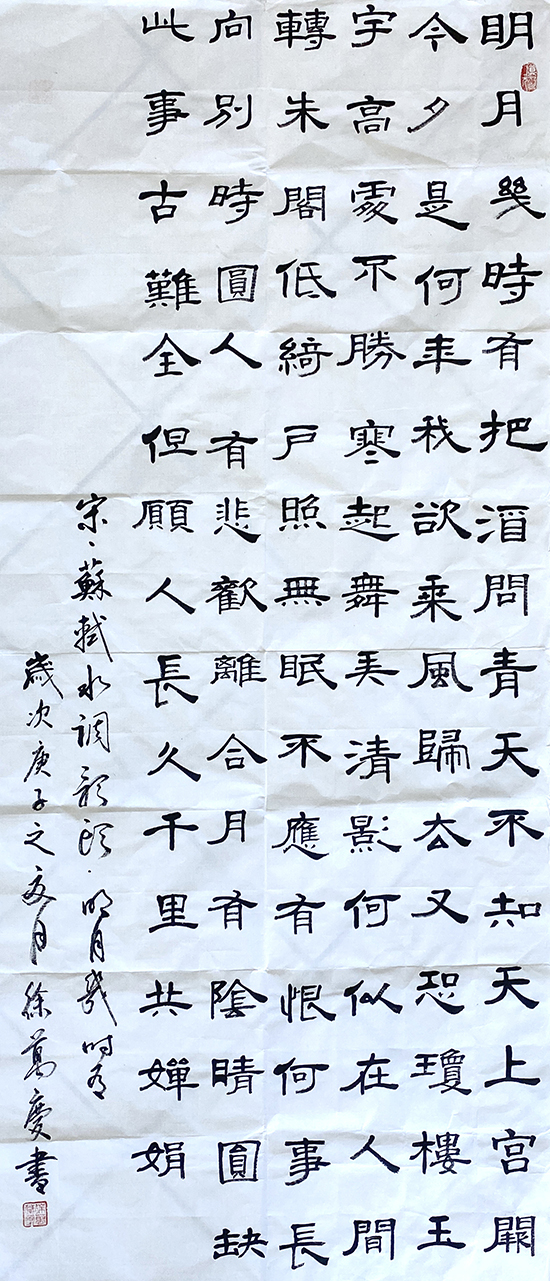 明月幾時有把酒問青天不知天上宮闕
今夕是何年我欲乘風歸去又恐瓊樓玉
宇高處不勝寒起舞弄清影何似在人間
轉朱閣低綺戶照無眠不應有恨何事長
向別時圓人有悲歡離合月有陰晴圓缺
此事古難全但願人長久千里共嬋娟
宋、蘇軾水调歌頭·明月幾時有
歲次庚子之夏月徐萬慶書